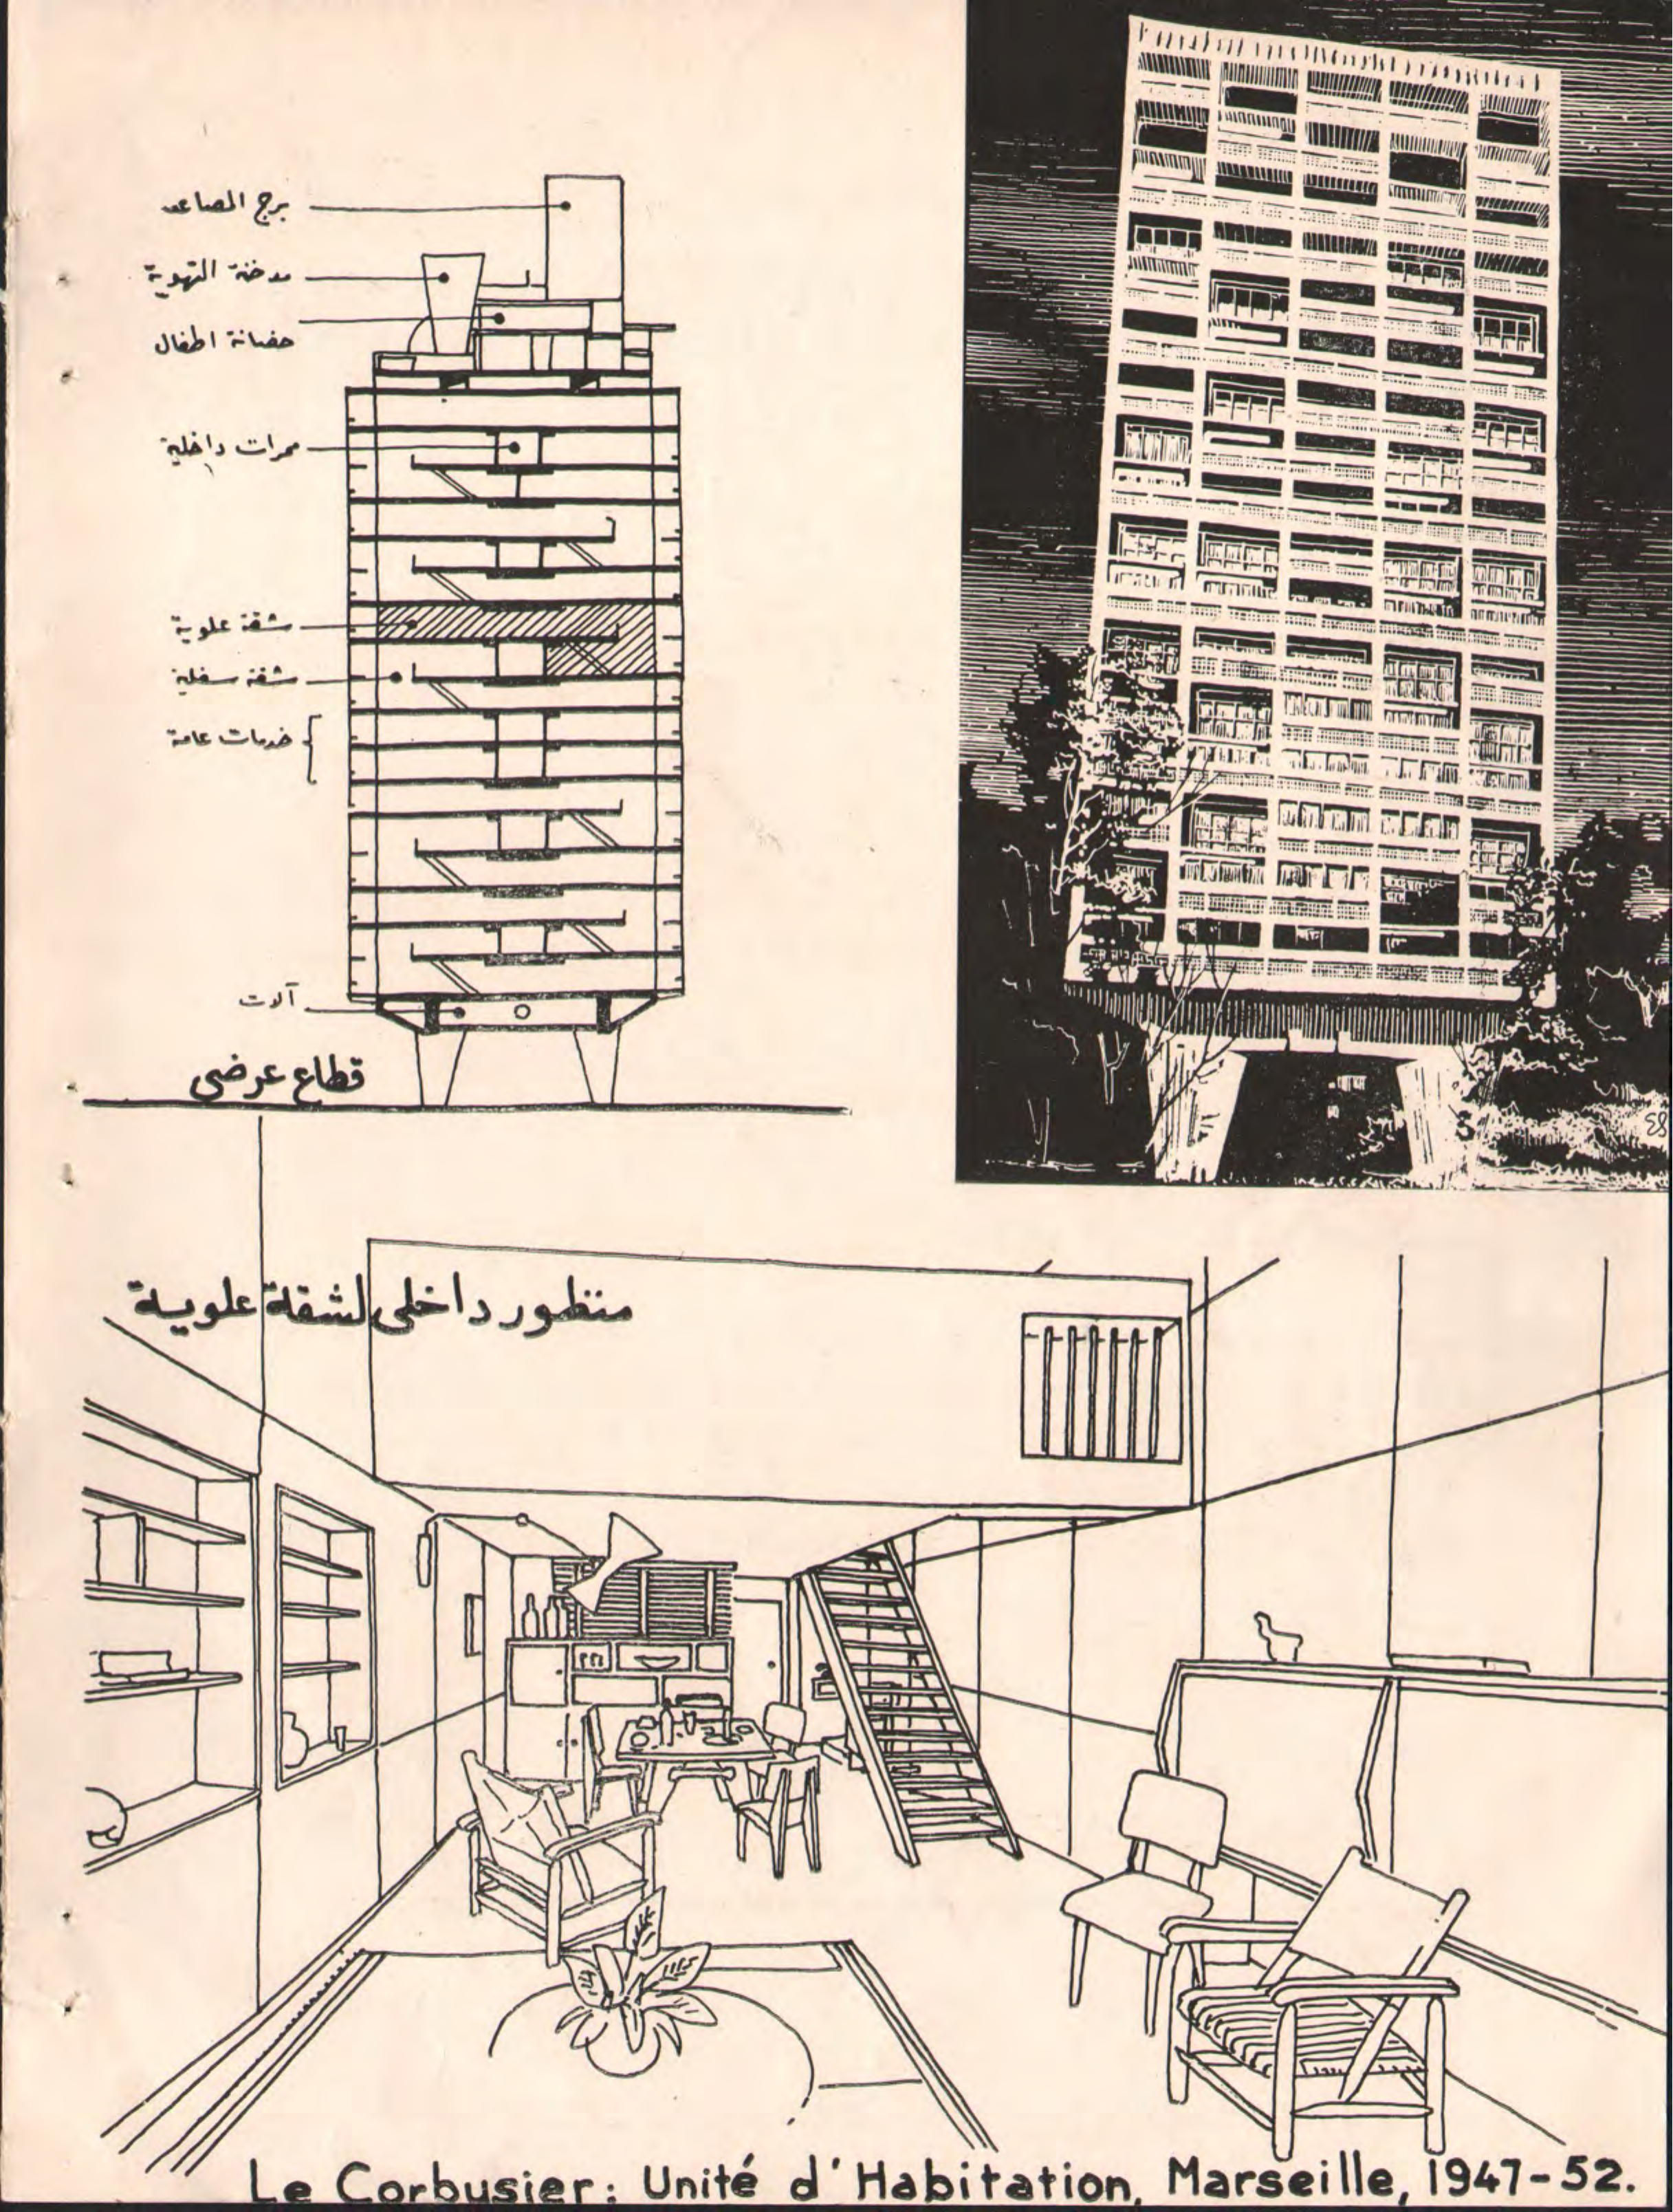 برج المصاعد
مدخنة التهوية
حضانة اطفال
ممرات داخلية
شقة علوية
شقة سفلية
خدمات عامة
آلات
قطاع عرضى
منظور داخلى لشقة علوية
Le Corbusier: Unité d'Habitation, Marseille, 1947-52.